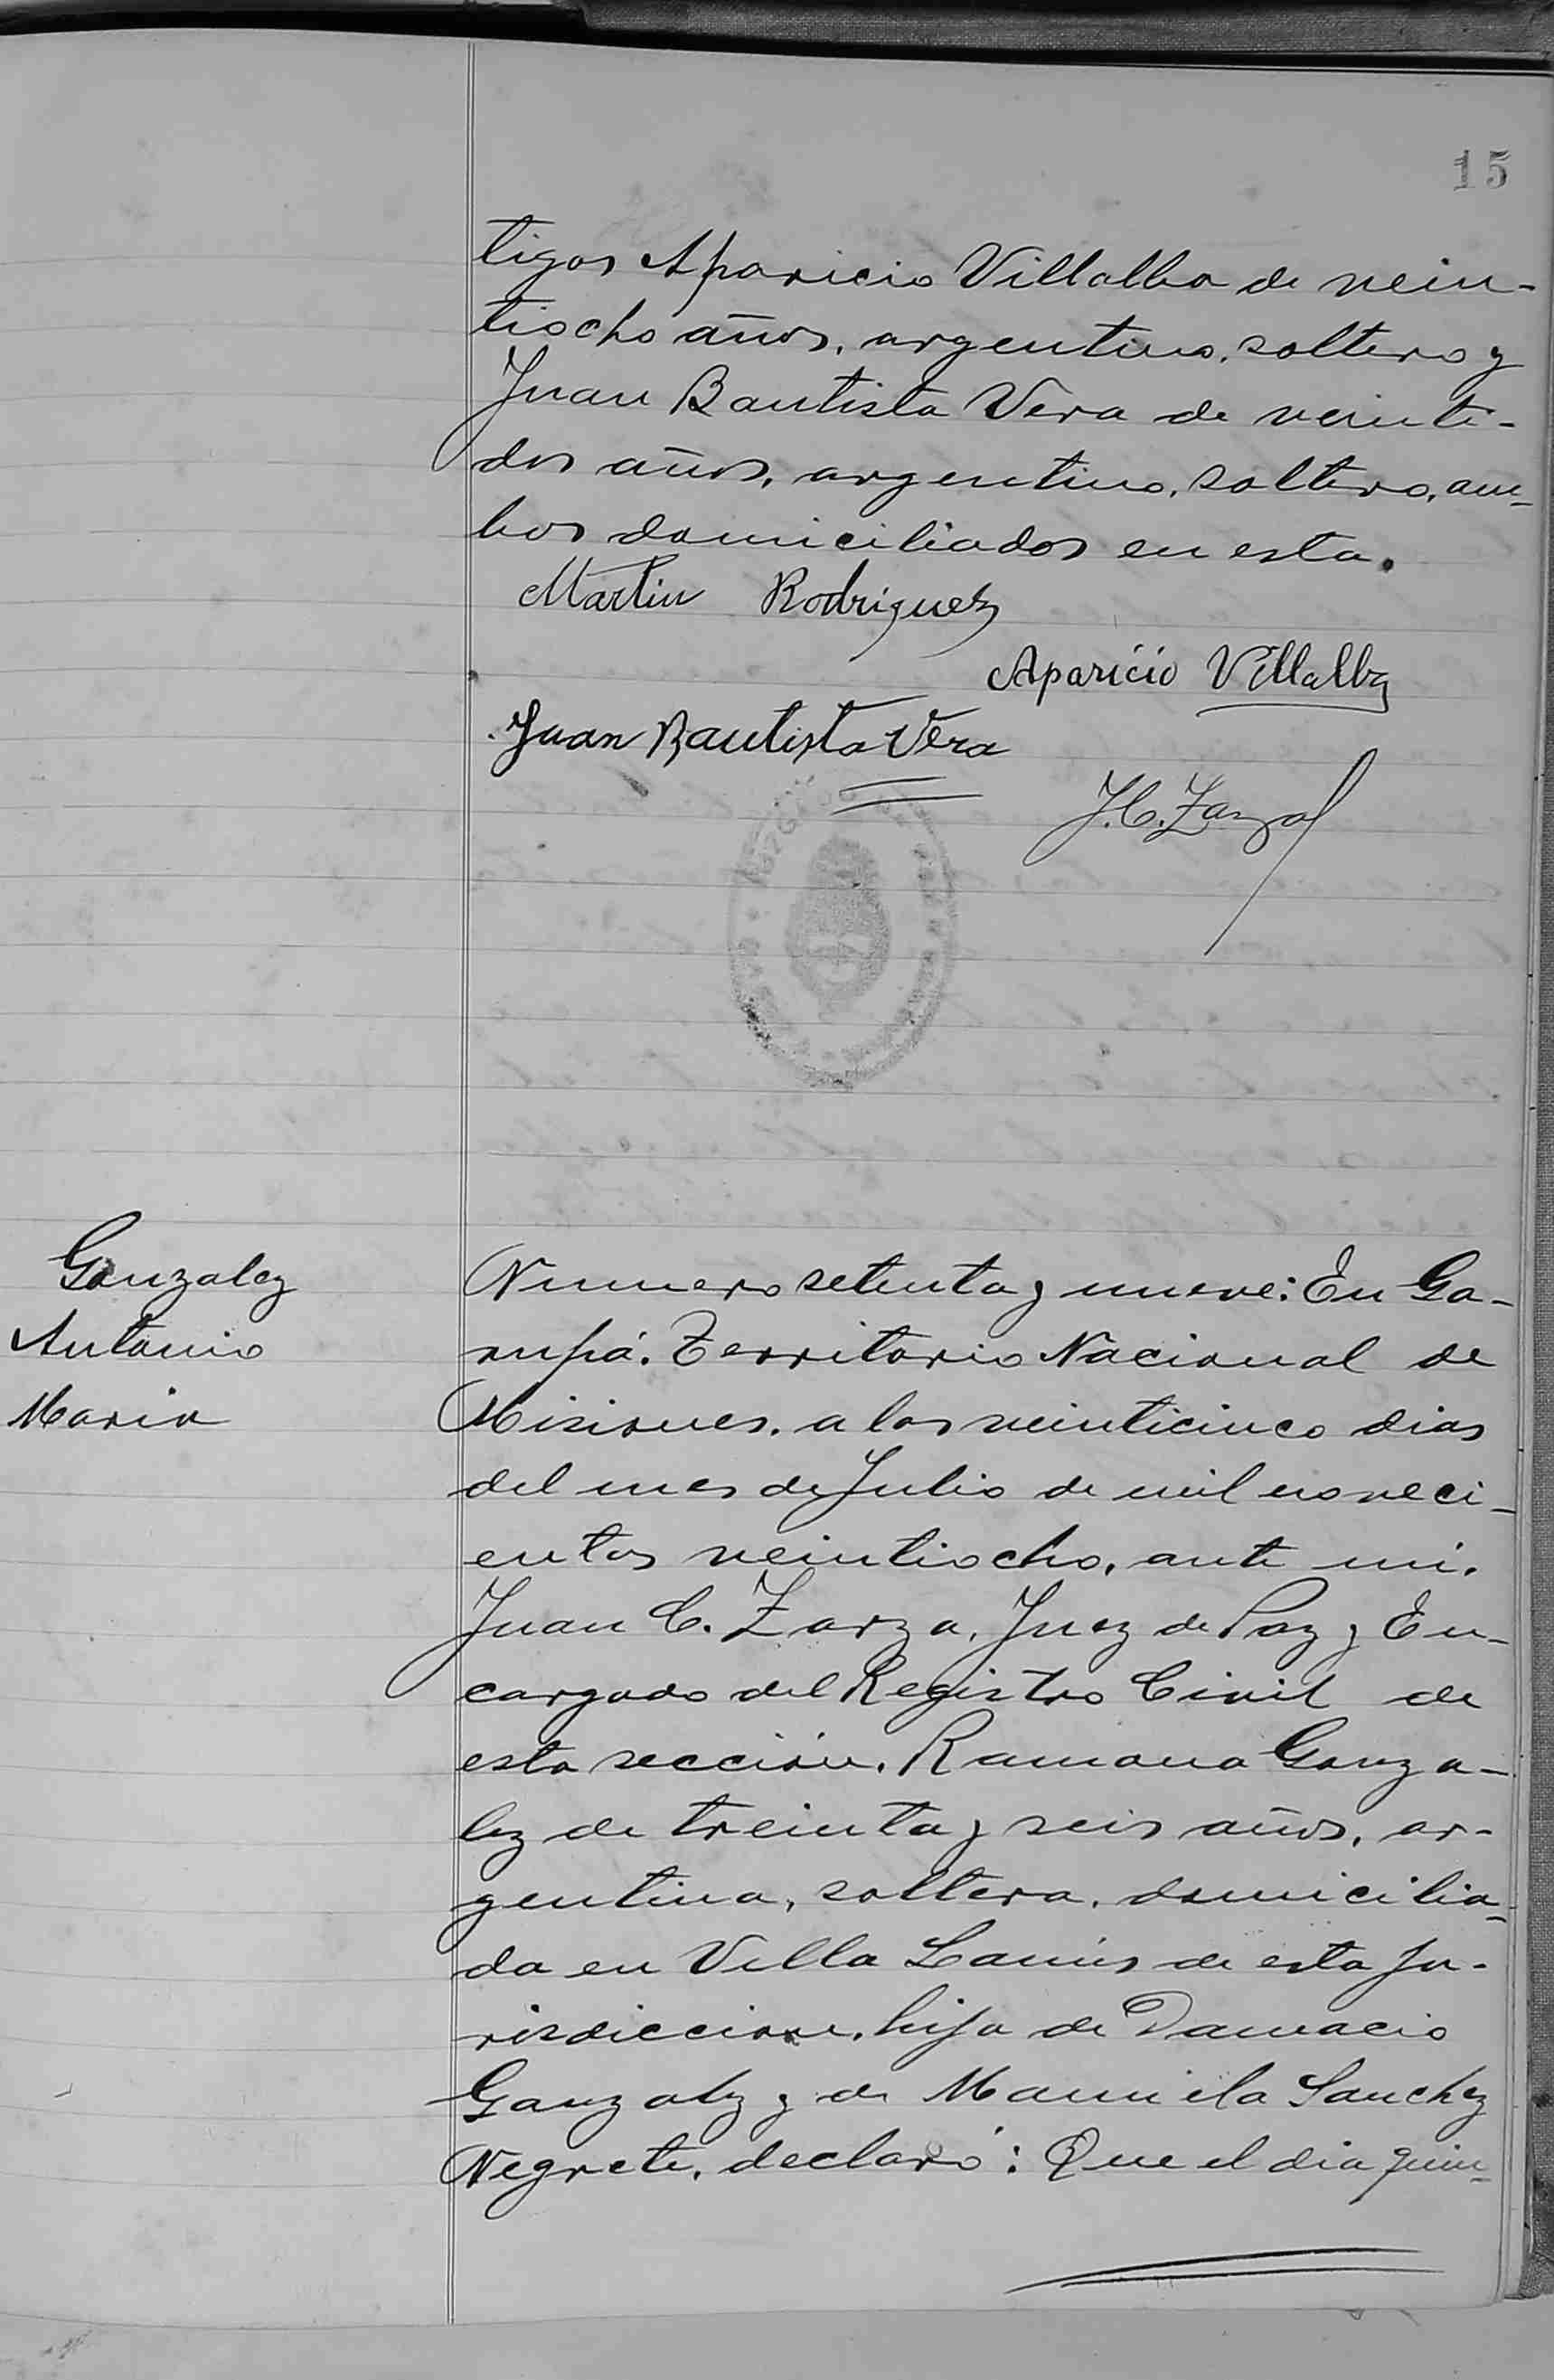 15
tigos Aparicio Villalba de vein-
tiocho años, argentino, soltero y
Juan Bautista Vera de veinti-
dos años, argentino, soltero, am-
bos domiciliados en esta.
Martin Rodriguez
Aparicio Villalba
Juan Bautista Vera
J. C. Zarza
Gonzalez
Antonio
Maria
Numero setenta y nueve: En Ga-
rupá. Territorio Nacional de
Misiones. a los veinticinco dias
del mes de Julio de mil noveci-
entos veintiocho, ante mi.
Juan C. Zarza, Juez de Paz y En-
cargado del Registro Civil de
esta sección. Ramona Gonza-
lez de treinta y seis años, ar-
gentina, soltera. domicilia-
da en Villa Lanús de esta ju-
risdiccion, hija de Damacio
Gonzalez y de Manuela Sanchez
Negrete, declaró: Que el dia quin-